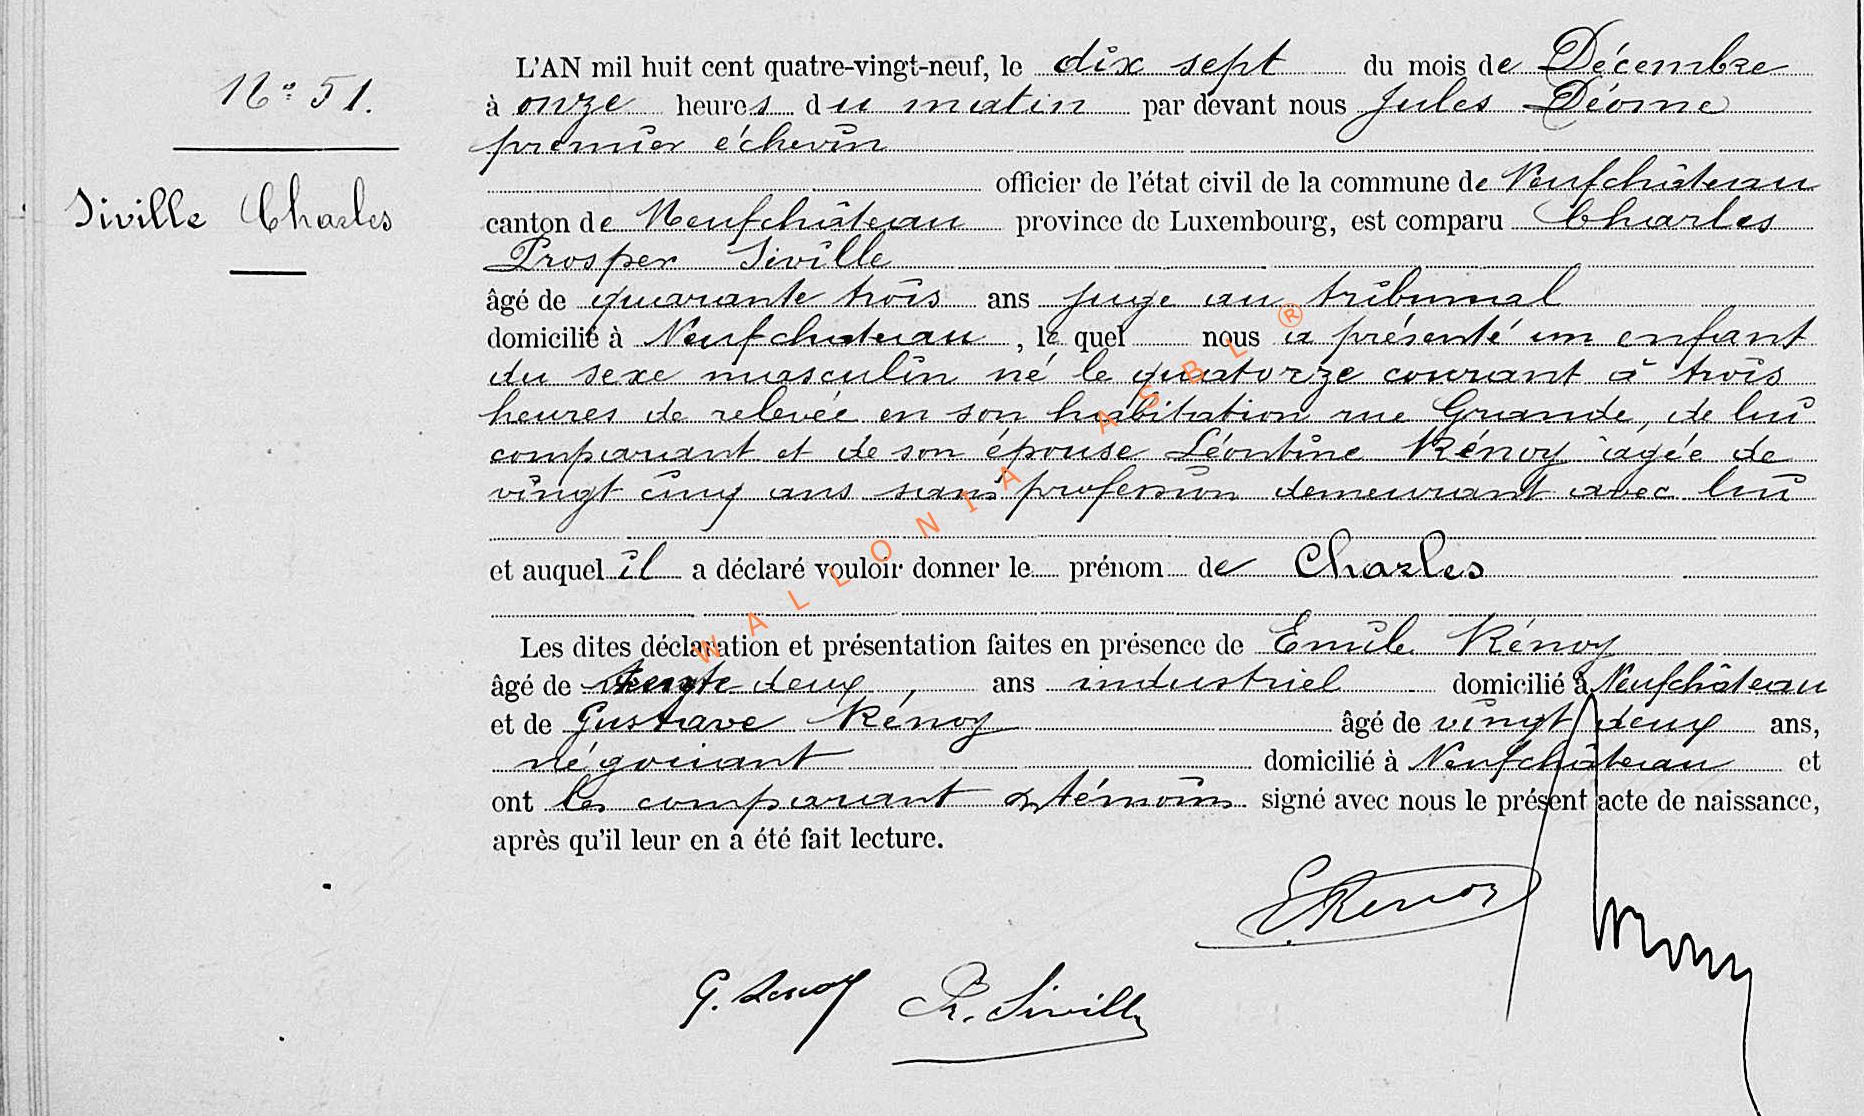 N° 51.
Siville Charles
L'AN mil huit cent quatre-vingt-neuf, le dix sept du mois de Décembre
à onze heures du matin par devant nous Jules Déome
premier échevin
officier de l'état civil de la commune de Neufchâteau
canton de Neufchâteau province de Luxembourg, est comparu Charles
Prosper Siville
âgé de quarante trois ans juge au tribunal
domicilié à Neufchateau, le quel nous a présenté un enfant
du sexe masculin né le quatorze courant à trois
heures de relevée en son habitation rue Grande, de lui
comparant et de son épouse Léontine Rénoy âgée de
vingt cinq ans sans profession demeurant avec lui
et auquel il a déclaré vouloir donner le prénom de Charles
Les dites déclaration et présentation faites en présence de Emile Rénoy
âgé de trente deux, ans industriel domicilié à Neufchâteau
et de Gustave Rénoy âgé de vingt deux ans,
négociant domicilié à Neufchâteau et
ont les comparant et témoins signé avec nous le présent acte de naissance,
après qu'il leur en a été fait lecture.
E. Renoy
G. Renoy Ch. Siville
WALLONIA ASBL ®